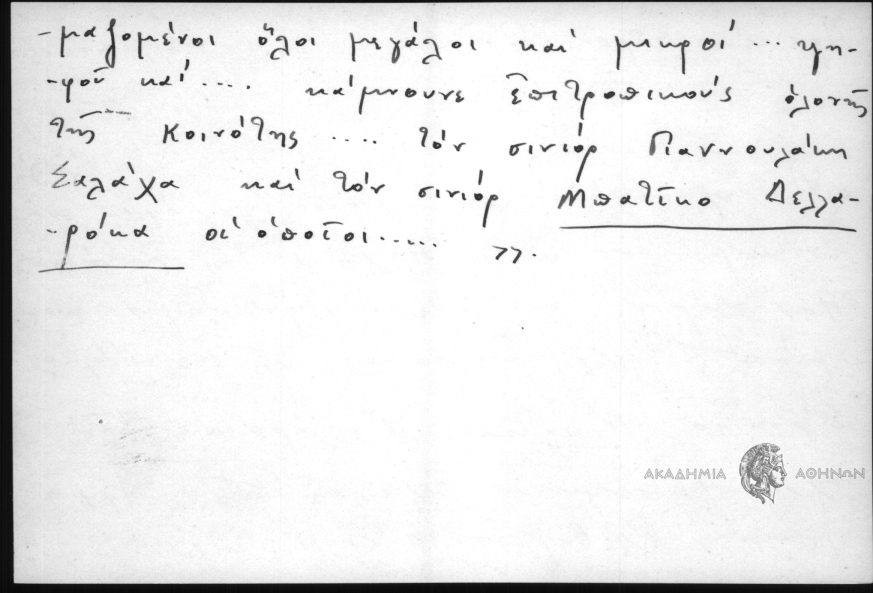 -μαζομένοι ὅλοι μεγάλοι καί μικροί ... ψη-
-φοῦ καί .... κάμνουνε ἐπιτροπικούς ὁλονῆς
τῆς Κοινότης .... τόν σινιόρ Γιαννουλάκη
Σαλάχα καί τόν σινιόρ Μπατῖκο Δελλα-
-ρόκα οἱ ὁποῖοι ...... >>.
ΑΚΑΔΗΜΙΑ ΑΘΗΝΩΝ